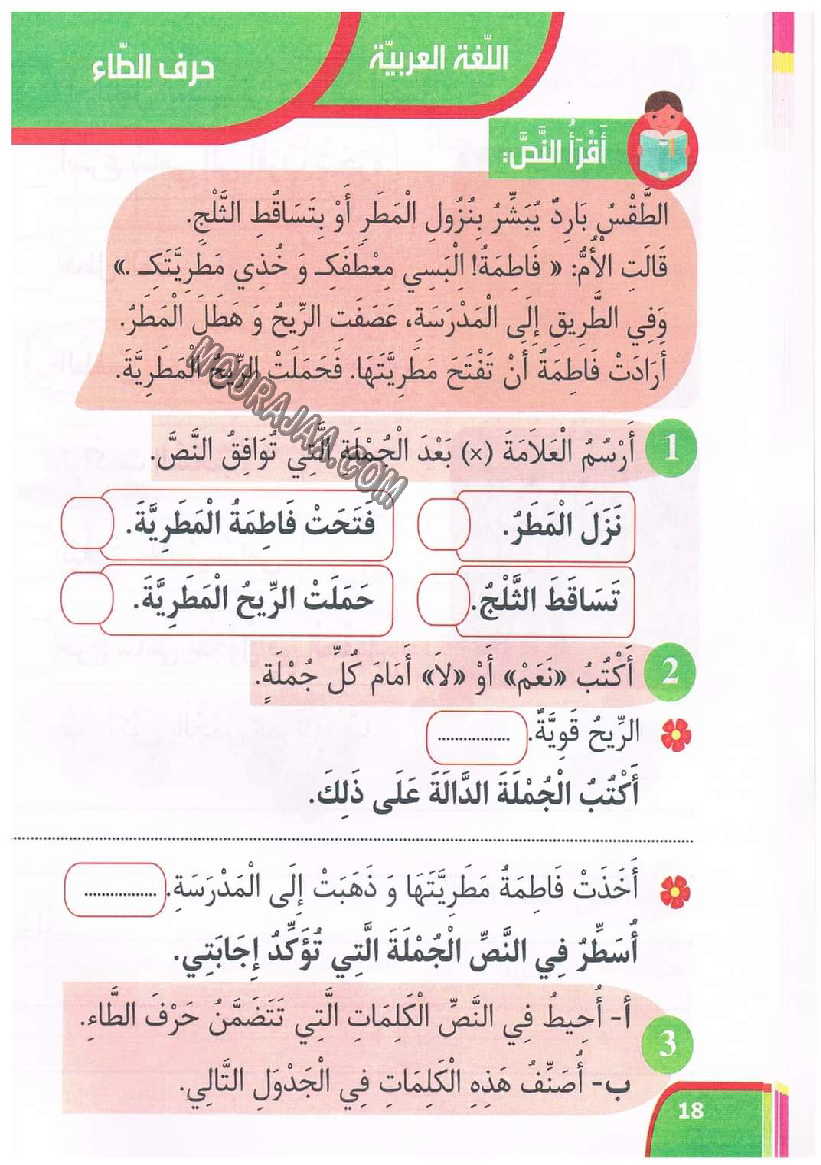 اللّغة العربيّة
حرف الطّاء
أَقْرَأُ النَّصَّ:
الطَّقْسُ بَارِدٌ يُبَشِّرُ بِنُزُولِ الْمَطَرِ أَوْ بِتَسَاقُطِ الثَّلْجِ.
قَالَتِ الْأُمُّ: « فَاطِمَةُ! الْبَسِي مِعْطَفَكِـ وَ خُذِي مَطَرِيَّتَكِـ .»
وَفِي الطَّرِيقِ إِلَى الْمَدْرَسَةِ، عَصَفَتِ الرِّيحُ وَ هَطَلَ الْمَطَرُ.
أَرَادَتْ فَاطِمَةُ أَنْ تَفْتَحَ مَطَرِيَّتَهَا. فَحَمَلَتْ الرِّيحُ الْمَطَرِيَّةَ.
MODRAJAA.COM
1 أَرْسُمُ الْعَلاَمَةَ (×) بَعْدَ الْجُمْلَةِ الَّتِي تُوَافِقُ النَّصَّ.
نَزَلَ الْمَطَرُ. فَتَحَتْ فَاطِمَةُ الْمَطَرِيَّةَ.
تَسَاقَطَ الثَّلْجُ. حَمَلَتْ الرِّيحُ الْمَطَرِيَّةَ.
2 أَكْتُبُ «نَعَمْ» أَوْ «لاَ» أَمَامَ كُلِّ جُمْلَةٍ.
الرِّيحُ قَوِيَّةٌ. ................
أَكْتُبُ الْجُمْلَةَ الدَّالَةَ عَلَى ذَلِكَ.
أَخَذَتْ فَاطِمَةُ مَطَرِيَّتَهَا وَ ذَهَبَتْ إِلَى الْمَدْرَسَةِ. ................
أُسَطِّرُ فِي النَّصِّ الْجُمْلَةَ الَّتِي تُؤَكِّدُ إِجَابَتِي.
3 أ- أُحِيطُ فِي النَّصِّ الْكَلِمَاتِ الَّتِي تَتَضَمَّنُ حَرْفَ الطَّاءِ.
ب- أُصَنِّفُ هَذِهِ الْكَلِمَاتِ فِي الْجَدْوَلِ التَّالِي.
18